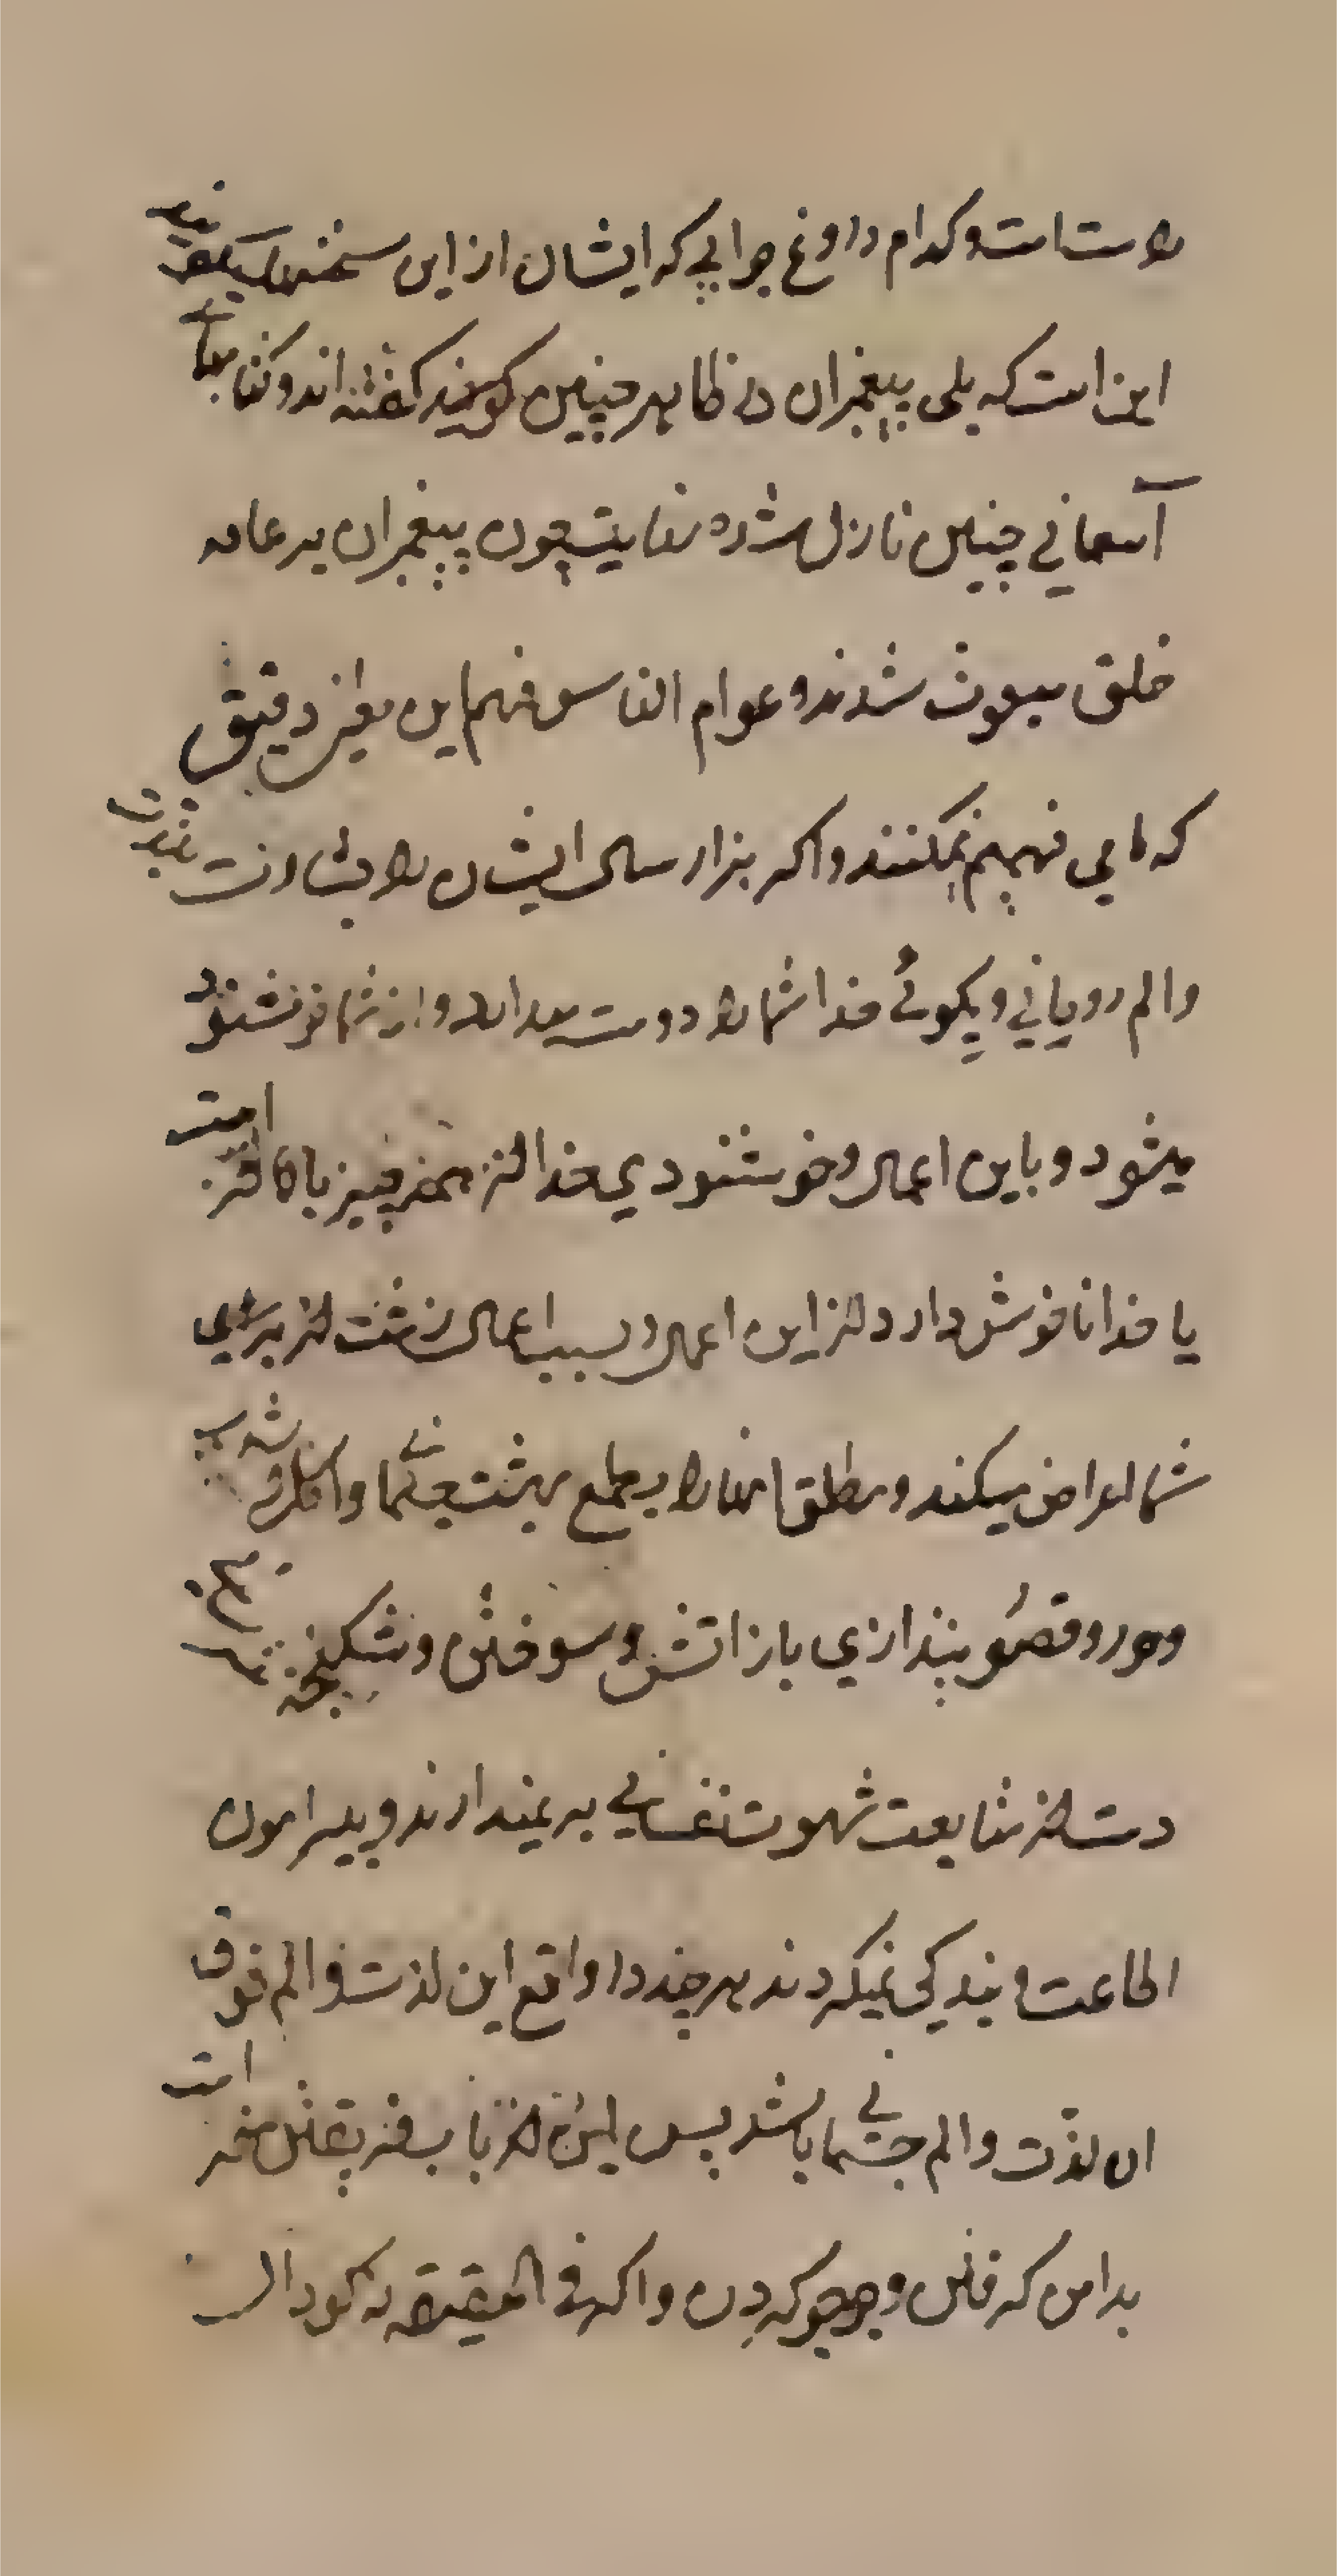 راست است و کدام دروغ جوابی که ایشان از این سخنها میکویند
این است که بلی پیغمبران در ظاهر چنین کویند کفته اند و کتابهای
آسمانی چنین نازل شده نهایتش چون پیغمبران بر عامه
خلق مبعوث شدند و عوام الناس فهم این معانی دقیق
که ما می فهمیم نمیکنند و اکر هزار سال ایشان را بشارت بلذت
والم روحانی و بکوئی خدا شما را دوست میدارد و از شما خوشنود
میشود و باین اعمال و خوشنودی خدا از همه چیز بالاتر است
یا خدا ناخوش دارد از این اعمال و بسبب اعمال زشت از برای
شما اعراض میکند و مطلقا انها را بطمع بهشت جسمانی و اکل و شرب
و حور و قصور نیندازی یا از اتش و سوختن و شکنجه نترسانی
دست از متابعت شهوت نفسانی بر نمیدارند و پیرامون
اطاعت و بندکی نمیکردند هر چند در واقع این لذت و الم فوق
ان لذت والم جسمانی باشد پس این از باب فریفتن خر است
بدامن که فلان و جو جو کردن و اکر فی الحقیقه نه کودالست